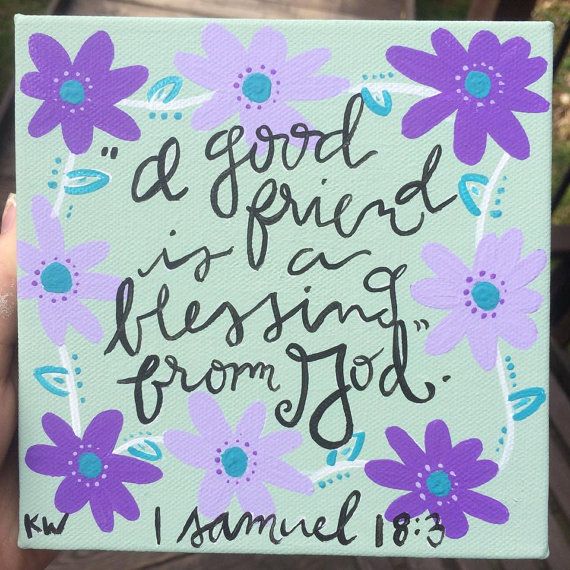 "A good
friend
is a
blessing
from God".
KW 1 samuel 18:3